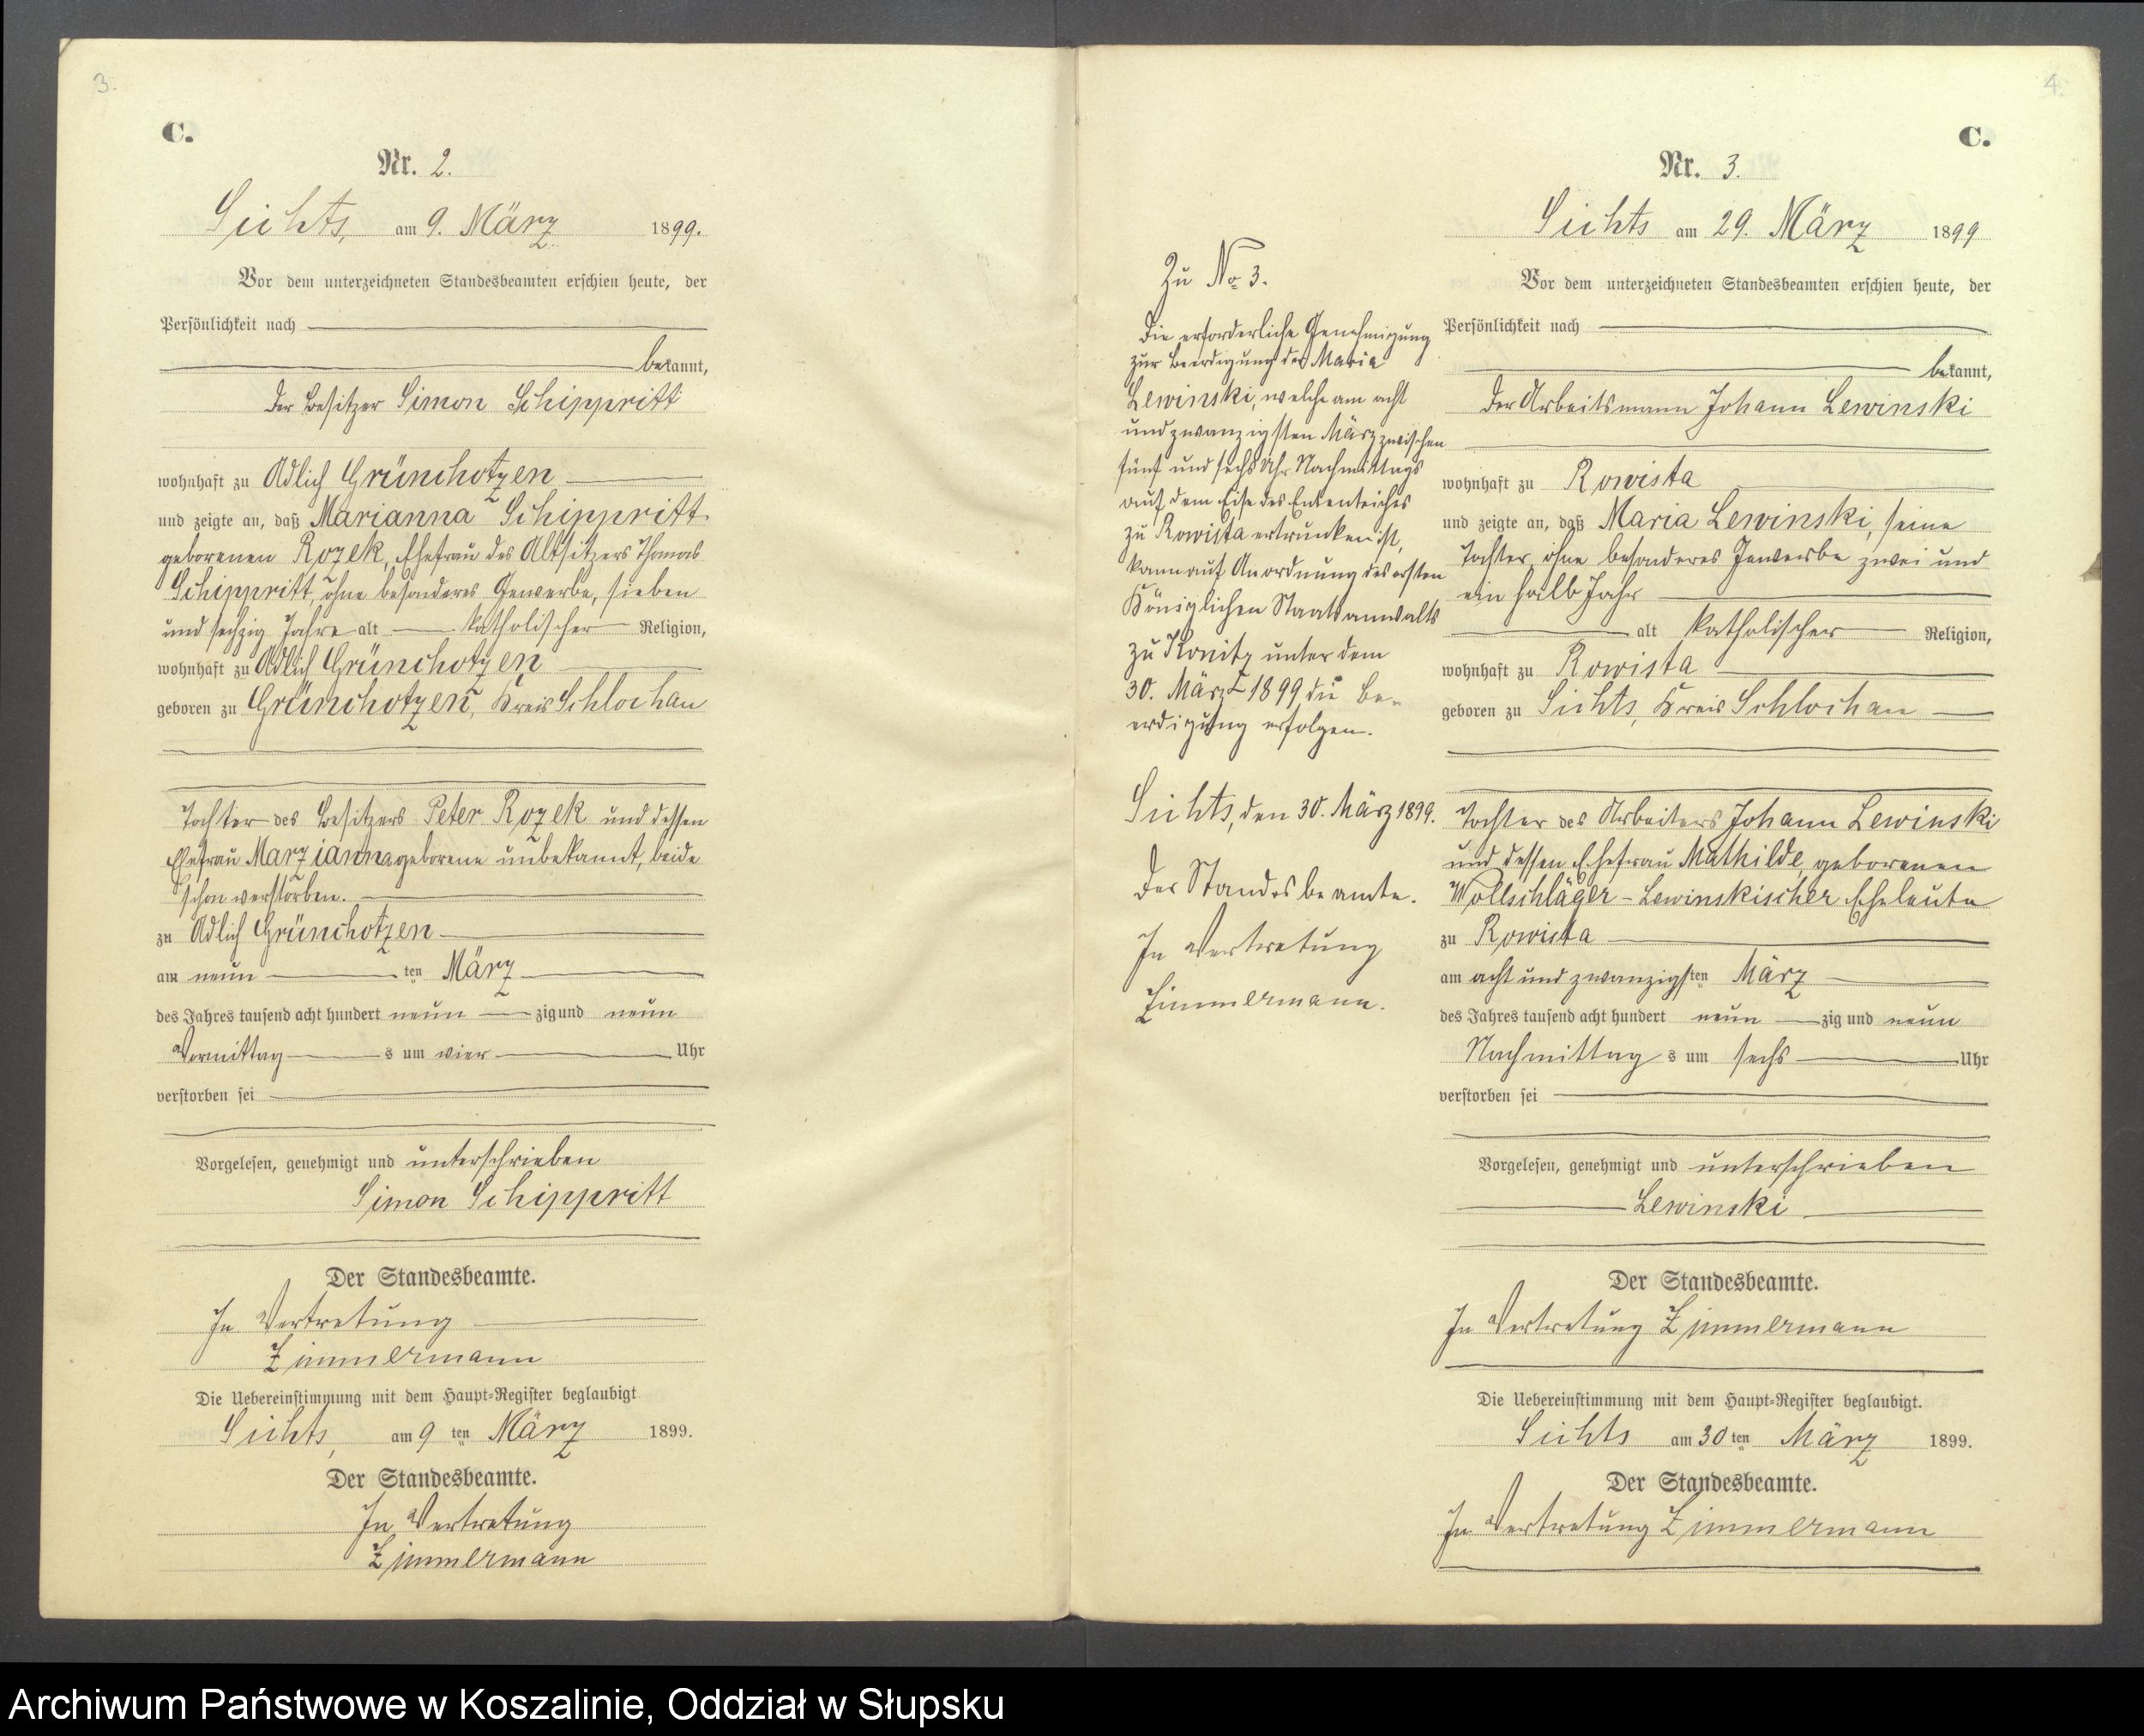 3.
C.
Nr. 2.
Sichts, am 9. März 1899.
Vor dem unterzeichneten Standesbeamten erschien heute, der
Persönlichkeit nach
bekannt,
der Besitzer Simon Schippritt
wohnhaft zu Adlich Grünchotzen
und zeigte an, daß Marianna Schippritt
geborenen Rozek, Ehefrau des Altsitzers Thomas
Schippritt, ohne besonderes Gewerbe, sieben
und sechzig Jahre alt katholischer Religion,
wohnhaft zu Adlich Grünchotzen
geboren zu Grünchotzen, Kreis Schlochau
Tochter des Besitzers Peter Rozek und dessen
Ehefrau Marzianna geborene unbekannt, beide
schon verstorben.
zu Adlich Grünchotzen
am neun ten März
des Jahres tausend acht hundert neun zig und neun
Vormittag s um vier Uhr
verstorben sei
Vorgelesen, genehmigt und unterschrieben
Simon Schippritt
Der Standesbeamte.
In Vertretung
Zimmermann
Die Uebereinstimmung mit dem Haupt-Register beglaubigt
Sichts, am 9 ten März 1899.
Der Standesbeamte.
In Vertretung
Zimmermann
Zu No 3.
Die erforderliche Genehmigung
zur Beerdigung der Maria
Lewinski, welche am acht
und zwanzigsten März zwischen
fünf und sechs Uhr Nachmittags
auf dem Eise des Ententeiches
zu Rowista ertrunken ist,
kann auf Anordnung des ersten
Königlichen Staatsanwalts
zu Konitz unter dem
30. März 1899 die Be-
erdigung erfolgen.
Sichts, den 30. März 1899.
Der Standesbeamte.
In Vertretung
Zimmermann.
4.
C.
Nr. 3.
Sichts am 29. März 1899
Vor dem unterzeichneten Standesbeamten erschien heute, der
Persönlichkeit nach
bekannt,
der Arbeitsmann Johann Lewinski
wohnhaft zu Rowista
und zeigte an, daß Maria Lewinski, seine
Tochter, ohne besonderes Gewerbe zwei und
ein halb Jahr
alt katholischer Religion,
wohnhaft zu Rowista
geboren zu Sichts, Kreis Schlochau
Tochter des Arbeiters Johann Lewinski
und dessen Ehefrau Mathilde, geborenen
Wollschläger - Lewinskischer Eheleute
zu Rowista
am acht und zwanzigsten März
des Jahres tausend acht hundert neun zig und neun
Nachmittag s um sechs Uhr
verstorben sei
Vorgelesen, genehmigt und unterschrieben
Lewinski
Der Standesbeamte.
In Vertretung Zimmermann
Die Uebereinstimmung mit dem Haupt-Register beglaubigt.
Sichts am 30 ten März 1899.
Der Standesbeamte.
In Vertretung Zimmermann
Archiwum Państwowe w Koszalinie, Oddział w Słupsku